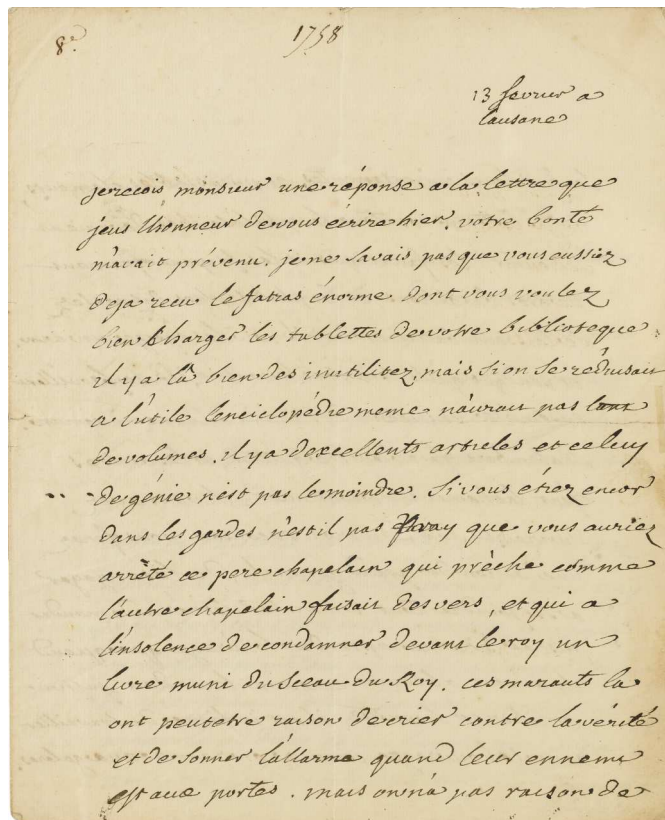 8e
1758
13 fevrier a
lausane
je recois monsieur une réponse a la lettre que
jeus lhonneur de vous écrire hier. votre bonté
m'avait prévenu. je ne savais pas que vous eussiez
deja recu le fatras énorme dont vous voulez
bien charger les tablettes de votre biblioteque.
il y a là bien des inutilitez, mais si on se réduisait
a l'utile l'enciclopédie meme n'aurait pas tant
de volumes. il y a dexcellents articles et celuy
de génie n'est pas le moindre. si vous étiez encor
dans les gardes n'estil pas vray que vous auriez
arrêté ce pere chapelain qui prêche comme
l'autre chapelain faisait des vers, et qui a
l'insolence de condamner devant le roy un
livre muni du sceau du Roy. ces marauts la
ont peutetre raison de crier contre la vérité
et de sonner l'allarme quand leur ennemi
est aux portes. mais on n'a pas raison de